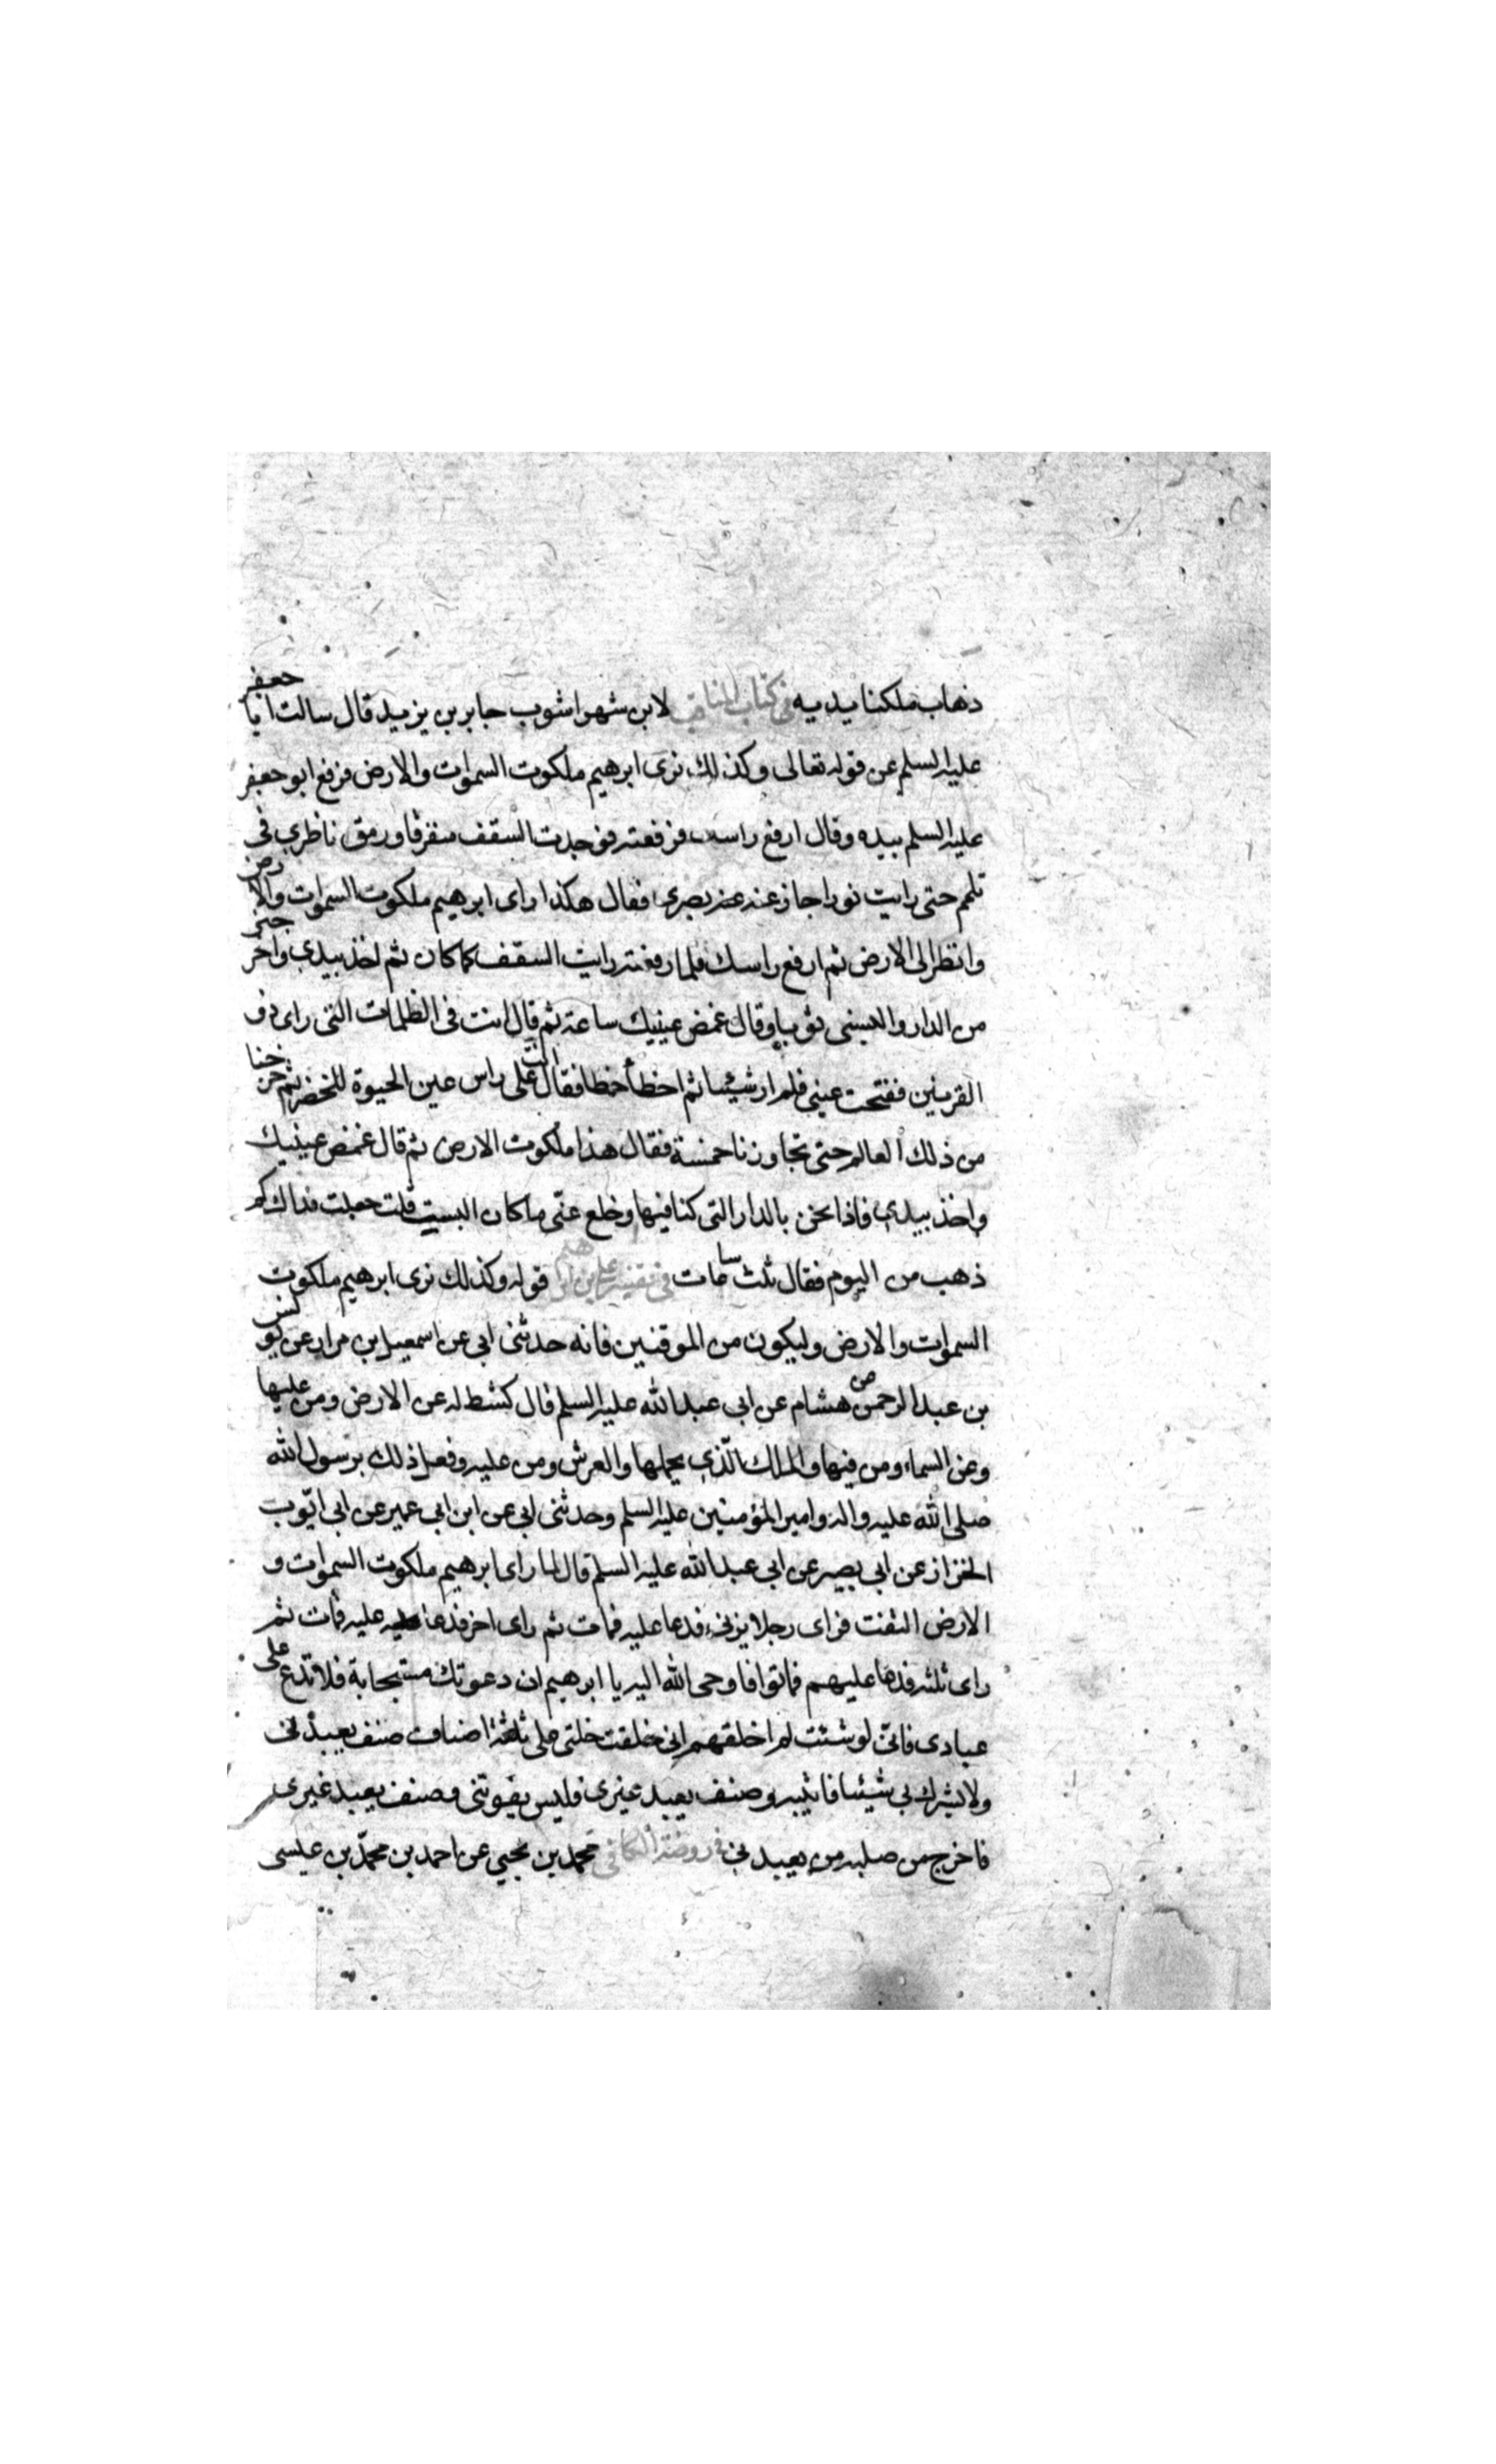 ذهاب ملكنا بيديه في كتاب المناقب لابن شهراشوب جابر بن يزيد قال سالت ابا جعفر
عليه السلم عن قوله تعالى وكذلك نرى ابرهيم ملكوت السموات والارض فرفع ابو جعفر
عليه السلم بيده وقال ارفع راسك فرفعته فوجدت السقف متفرقا ورمق ناظري في
ثلم حتى رايت نورا حاز عنه بصرى فقال هكذا راى ابرهيم ملكوت السموات والارض
وانظر الى الارض ثم ارفع راسك فلما رفعته رايت السقف كما كان ثم اخذ بيدي واخرجني
من الدار والبسنى ثوبا وقال غمض عينيك ساعة ثم قال انت في الظلمات التي راى ذو
القرنين ففتحت عيني فلم ار شيئا ثم اخطأ خطا فقال انت على راس عين الحيوة للخضر ثم خرجنا
من ذلك العالم حتى تجاوزنا خمسة فقال هذا ملكوت الارض ثم قال غمض عينيك
واخذ بيدي فاذا نحن بالدار التي كنا فيها وخلع عنّي ما كان البسنيه قلت جعلت فداك كم
ذهب من اليوم فقال ثلث ساعات في تفسير علي بن ابرهيم قوله وكذلك نرى ابرهيم ملكوت
السموات والارض وليكون من الموقنين فانه حدثني ابي عن اسمعيل بن مرار عن يونس
بن عبد الرحمن عن هشام عن ابي عبد الله عليه السلم قال كشط له عن الارض ومن عليها
وعن السماء ومن فيها والملك الّذي يحملها والعرش ومن عليه وفعل ذلك برسول الله
صلى الله عليه واله وامير المؤمنين عليه السلم وحدثني ابي عن ابن ابي عمير عن ابي ايّوب
الخزاز عن ابي بصير عن ابي عبد الله عليه السلم قال لما راى ابرهيم ملكوت السموات و
الارض التفت فراى رجلا يزني فدعا عليه فمات ثم راى اخر فدعا عليه فمات ثم
راى ثلثه فدعا عليهم فماتوا فاوحى الله اليه يا ابرهيم ان دعوتك مستجابة فلا تدع على
عبادى فانّى لو شئت لم اخلقهم انى خلقت خلقى على ثلثة اصناف صنف يعبدنى
ولا يشرك بي شيئا فاثيبه وصنف يعبد غيرى فليس يفوتنى وصنف يعبد غيرى
فاخرج من صلبه من يعبدنى في روضة الكافي محمد بن يحيى عن احمد بن محمّد بن عيسى